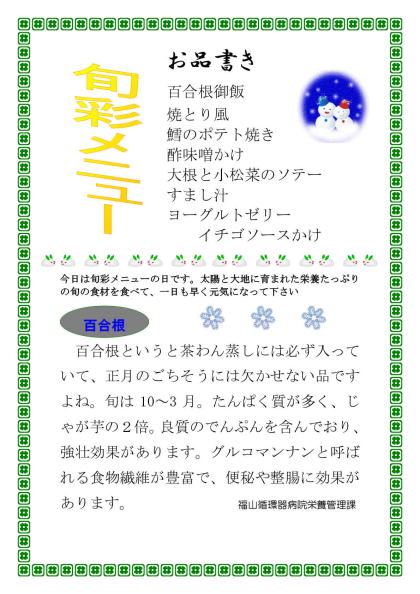 旬彩メニュー
お品書き
百合根御飯
焼とり風
鱈のポテト焼き
酢味噌かけ
大根と小松菜のソテー
すまし汁
ヨーグルトゼリー
イチゴソースかけ
今日は旬彩メニューの日です。太陽と大地に育まれた栄養たっぷり
の旬の食材を食べて、一日も早く元気になって下さい
百合根
百合根というと茶わん蒸しには必ず入って
いて、正月のごちそうには欠かせない品です
よね。旬は 10～3 月。たんぱく質が多く、じ
ゃが芋の２倍。良質のでんぷんを含んでおり、
強壮効果があります。グルコマンナンと呼ば
れる食物繊維が豊富で、便秘や整腸に効果が
あります。
福山循環器病院栄養管理課